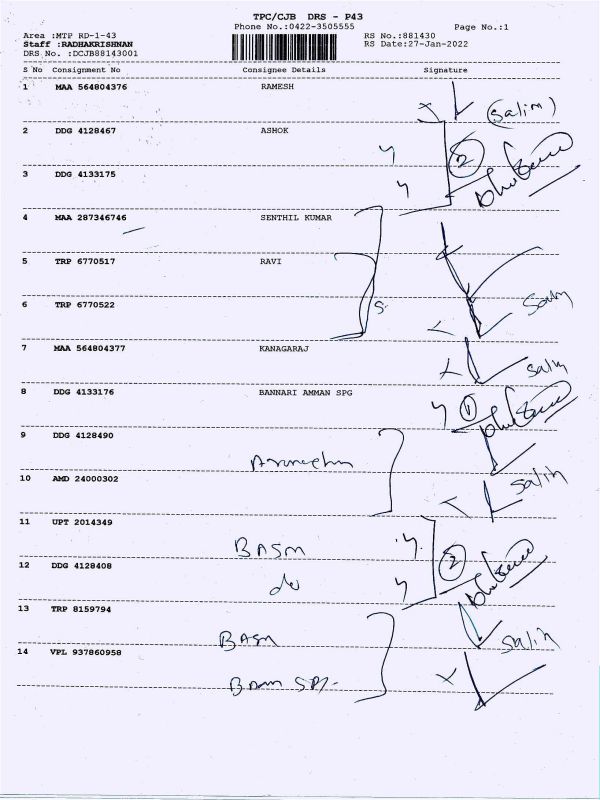 TPC/CJB DRS - P43
Phone No.:0422-3505555 Page No.:1
Area :MTP RD-1-43 RS No.:881430
Staff :RADHAKRISHNAN RS Date:27-Jan-2022
DRS No. :DCJB88143001
S No Consignment No Consignee Details Signature
1 MAA 564804376 RAMESH
(Salim)
2 DDG 4128467 ASHOK
2
3 DDG 4133175
4 MAA 287346746 SENTHIL KUMAR
5 TRP 6770517 RAVI
6 TRP 6770522
Salim
7 MAA 564804377 KANAGARAJ
Salim
8 DDG 4133176 BANNARI AMMAN SPG
1
9 DDG 4128490
10 AMD 24000302
Salim
11 UPT 2014349
BASM
12 DDG 4128408 2
do
13 TRP 8159794
BASM Salim
14 VPL 937860958